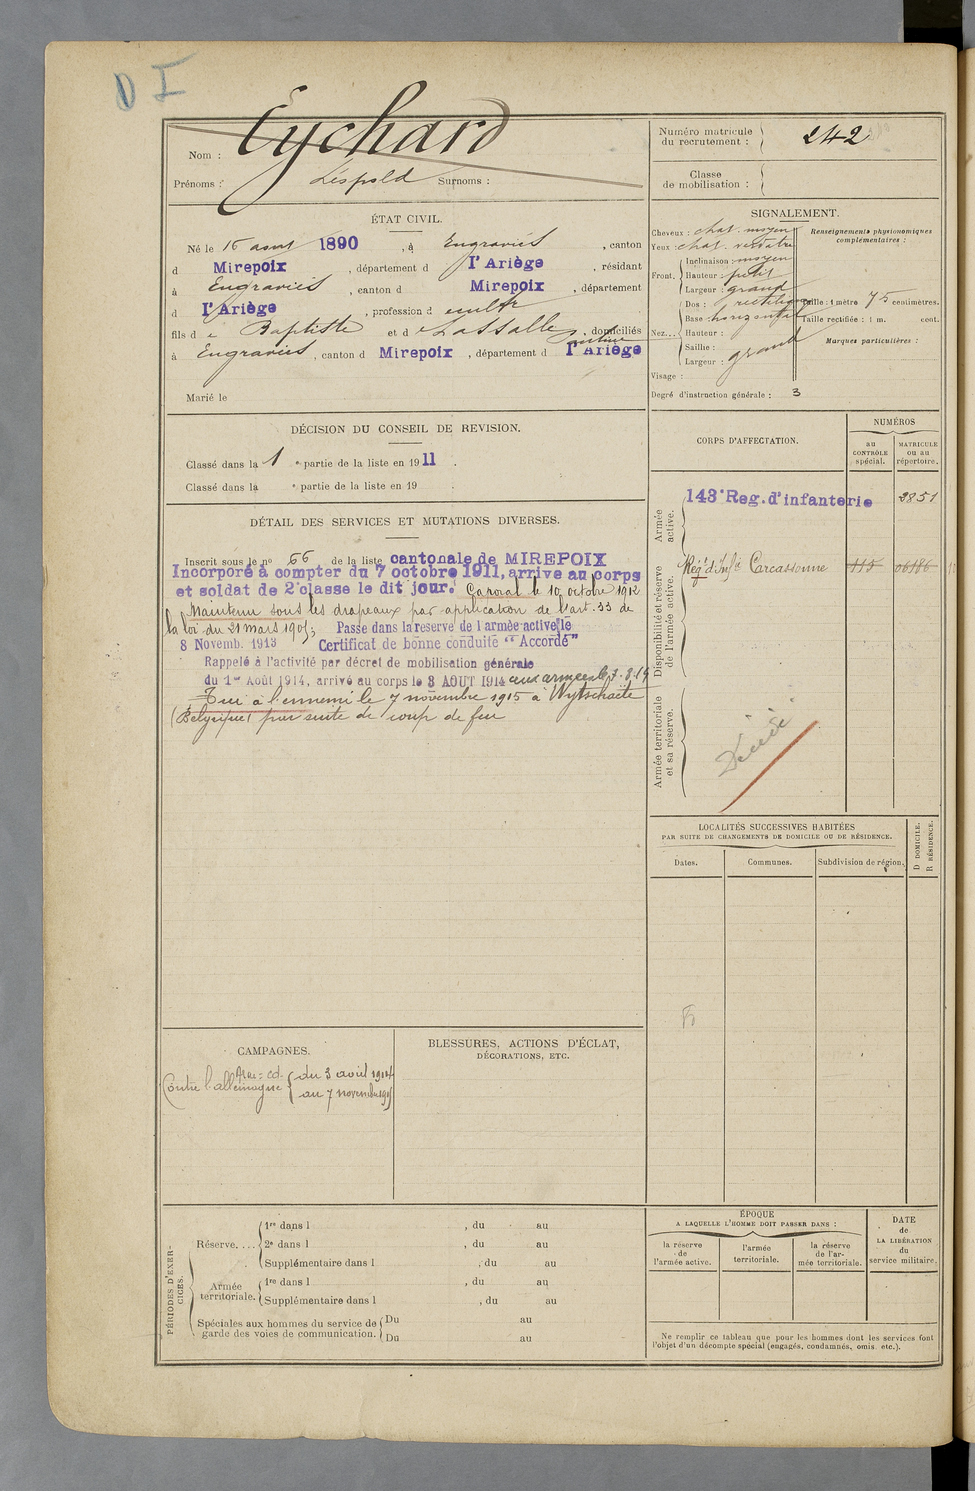 D I
Nom : Eychard
Prénoms : Léopold Surnoms :
Numéro matricule
du recrutement : 242
Classe
de mobilisation :
ÉTAT CIVIL.
Né le 16 aout 1890, à Engraviès, canton
d Mirepoix, département d l'Ariège, résidant
à Engraviès, canton d Mirepoix, département
d l'Ariège, profession d cultr
fils d e Baptiste et d e Lassalle, domiciliés
à Engraviès, canton d Mirepoix, département d l'Ariège
Marié le
SIGNALEMENT.
Cheveux : chat. moyen
Yeux : chat. verdatre
Front. Inclinaison : moyen
Hauteur : petit
Largeur : grand
Nez... Dos : rectiligne
Base : horizontale
Hauteur :
Saillie :
Largeur : grand
Visage :
Degré d'instruction générale : 3
Renseignements physionomiques
complémentaires :
Taille : 1 mètre 75 centimètres.
Taille rectifiée : 1 m. cent.
Marques particulières :
DÉCISION DU CONSEIL DE REVISION.
Classé dans la 1 e partie de la liste en 1911.
Classé dans la e partie de la liste en 19 .
CORPS D'AFFECTATION.
NUMÉROS
au
CONTRÔLE
spécial.
MATRICULE
ou au
répertoire.
Armée
active.
143e Reg. d'infanterie 2851
Disponibilité et réserve
de l'armée active.
Régt d'Infie Carcassonne 115 06186
Armée territoriale
et sa réserve.
Décédé
DÉTAIL DES SERVICES ET MUTATIONS DIVERSES.
Inscrit sous le no 66 de la liste cantonale de MIREPOIX
Incorporé à compter du 7 octobre 1911, arrive au corps
et soldat de 2e classe le dit jour. Caporal le 10 octobre 1912
Maintenu sous les drapeaux par application de l'art. 33 de
la loi du 21 mars 1905; Passe dans la reserve de l'armée active le
8 Novemb. 1913 Certificat de bonne conduite "Accordé"
Rappelé à l'activité par décret de mobilisation générale
du 1er Août 1914, arrivé au corps le 3 AOUT 1914 aux armées le 7.8.14
Tué à l'ennemi le 7 novembre 1915 à Wytschaete
(Belgique) par suite de coup de feu
LOCALITÉS SUCCESSIVES HABITÉES
PAR SUITE DE CHANGEMENTS DE DOMICILE OU DE RÉSIDENCE.
Dates.
Communes.
Subdivision de région.
D DOMICILE.
R RÉSIDENCE.
CAMPAGNES.
Contre l'allemagne
du 3 avril 1914
au 7 novembre 1915
BLESSURES, ACTIONS D'ÉCLAT,
DÉCORATIONS, ETC.
PÉRIODES D'EXERCICES.
Réserve.... 1re dans l , du au
2e dans l , du au
Supplémentaire dans l , du au
Armée
territoriale. 1re dans l , du au
Supplémentaire dans l , du au
Spéciales aux hommes du service de
garde des voies de communication. Du au
Du au
ÉPOQUE
A LAQUELLE L'HOMME DOIT PASSER DANS :
la réserve
de
l'armée active.
l'armée
territoriale.
la réserve
de l'ar-
mée territoriale.
DATE
de
LA LIBÉRATION
du
service militaire.
Ne remplir ce tableau que pour les hommes dont les services font
l'objet d'un décompte spécial (engagés, condamnés, omis etc.).